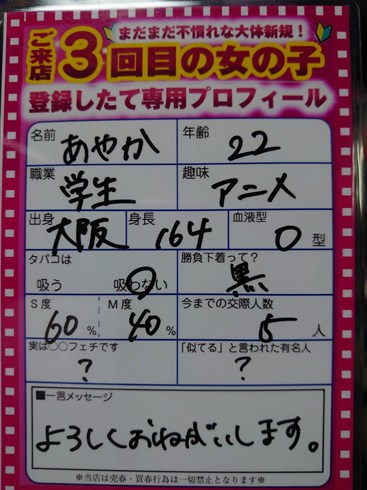 まだまだ不慣れな大体新規！
ご来店3回目の女の子
登録したて専用プロフィール
名前 あやか 年齢 22
職業 学生 趣味 アニメ
出身 大阪 身長 164 血液型 O 型
タバコは 吸う 吸わない 勝負下着って？ 黒
S度 60 % M度 40 % 今までの交際人数 5 人
実は○○フェチです ？ 「似てる」と言われた有名人 ？
■一言メッセージ
よろしくおねがいします。
※当店は売春・買春行為は一切禁止となります※